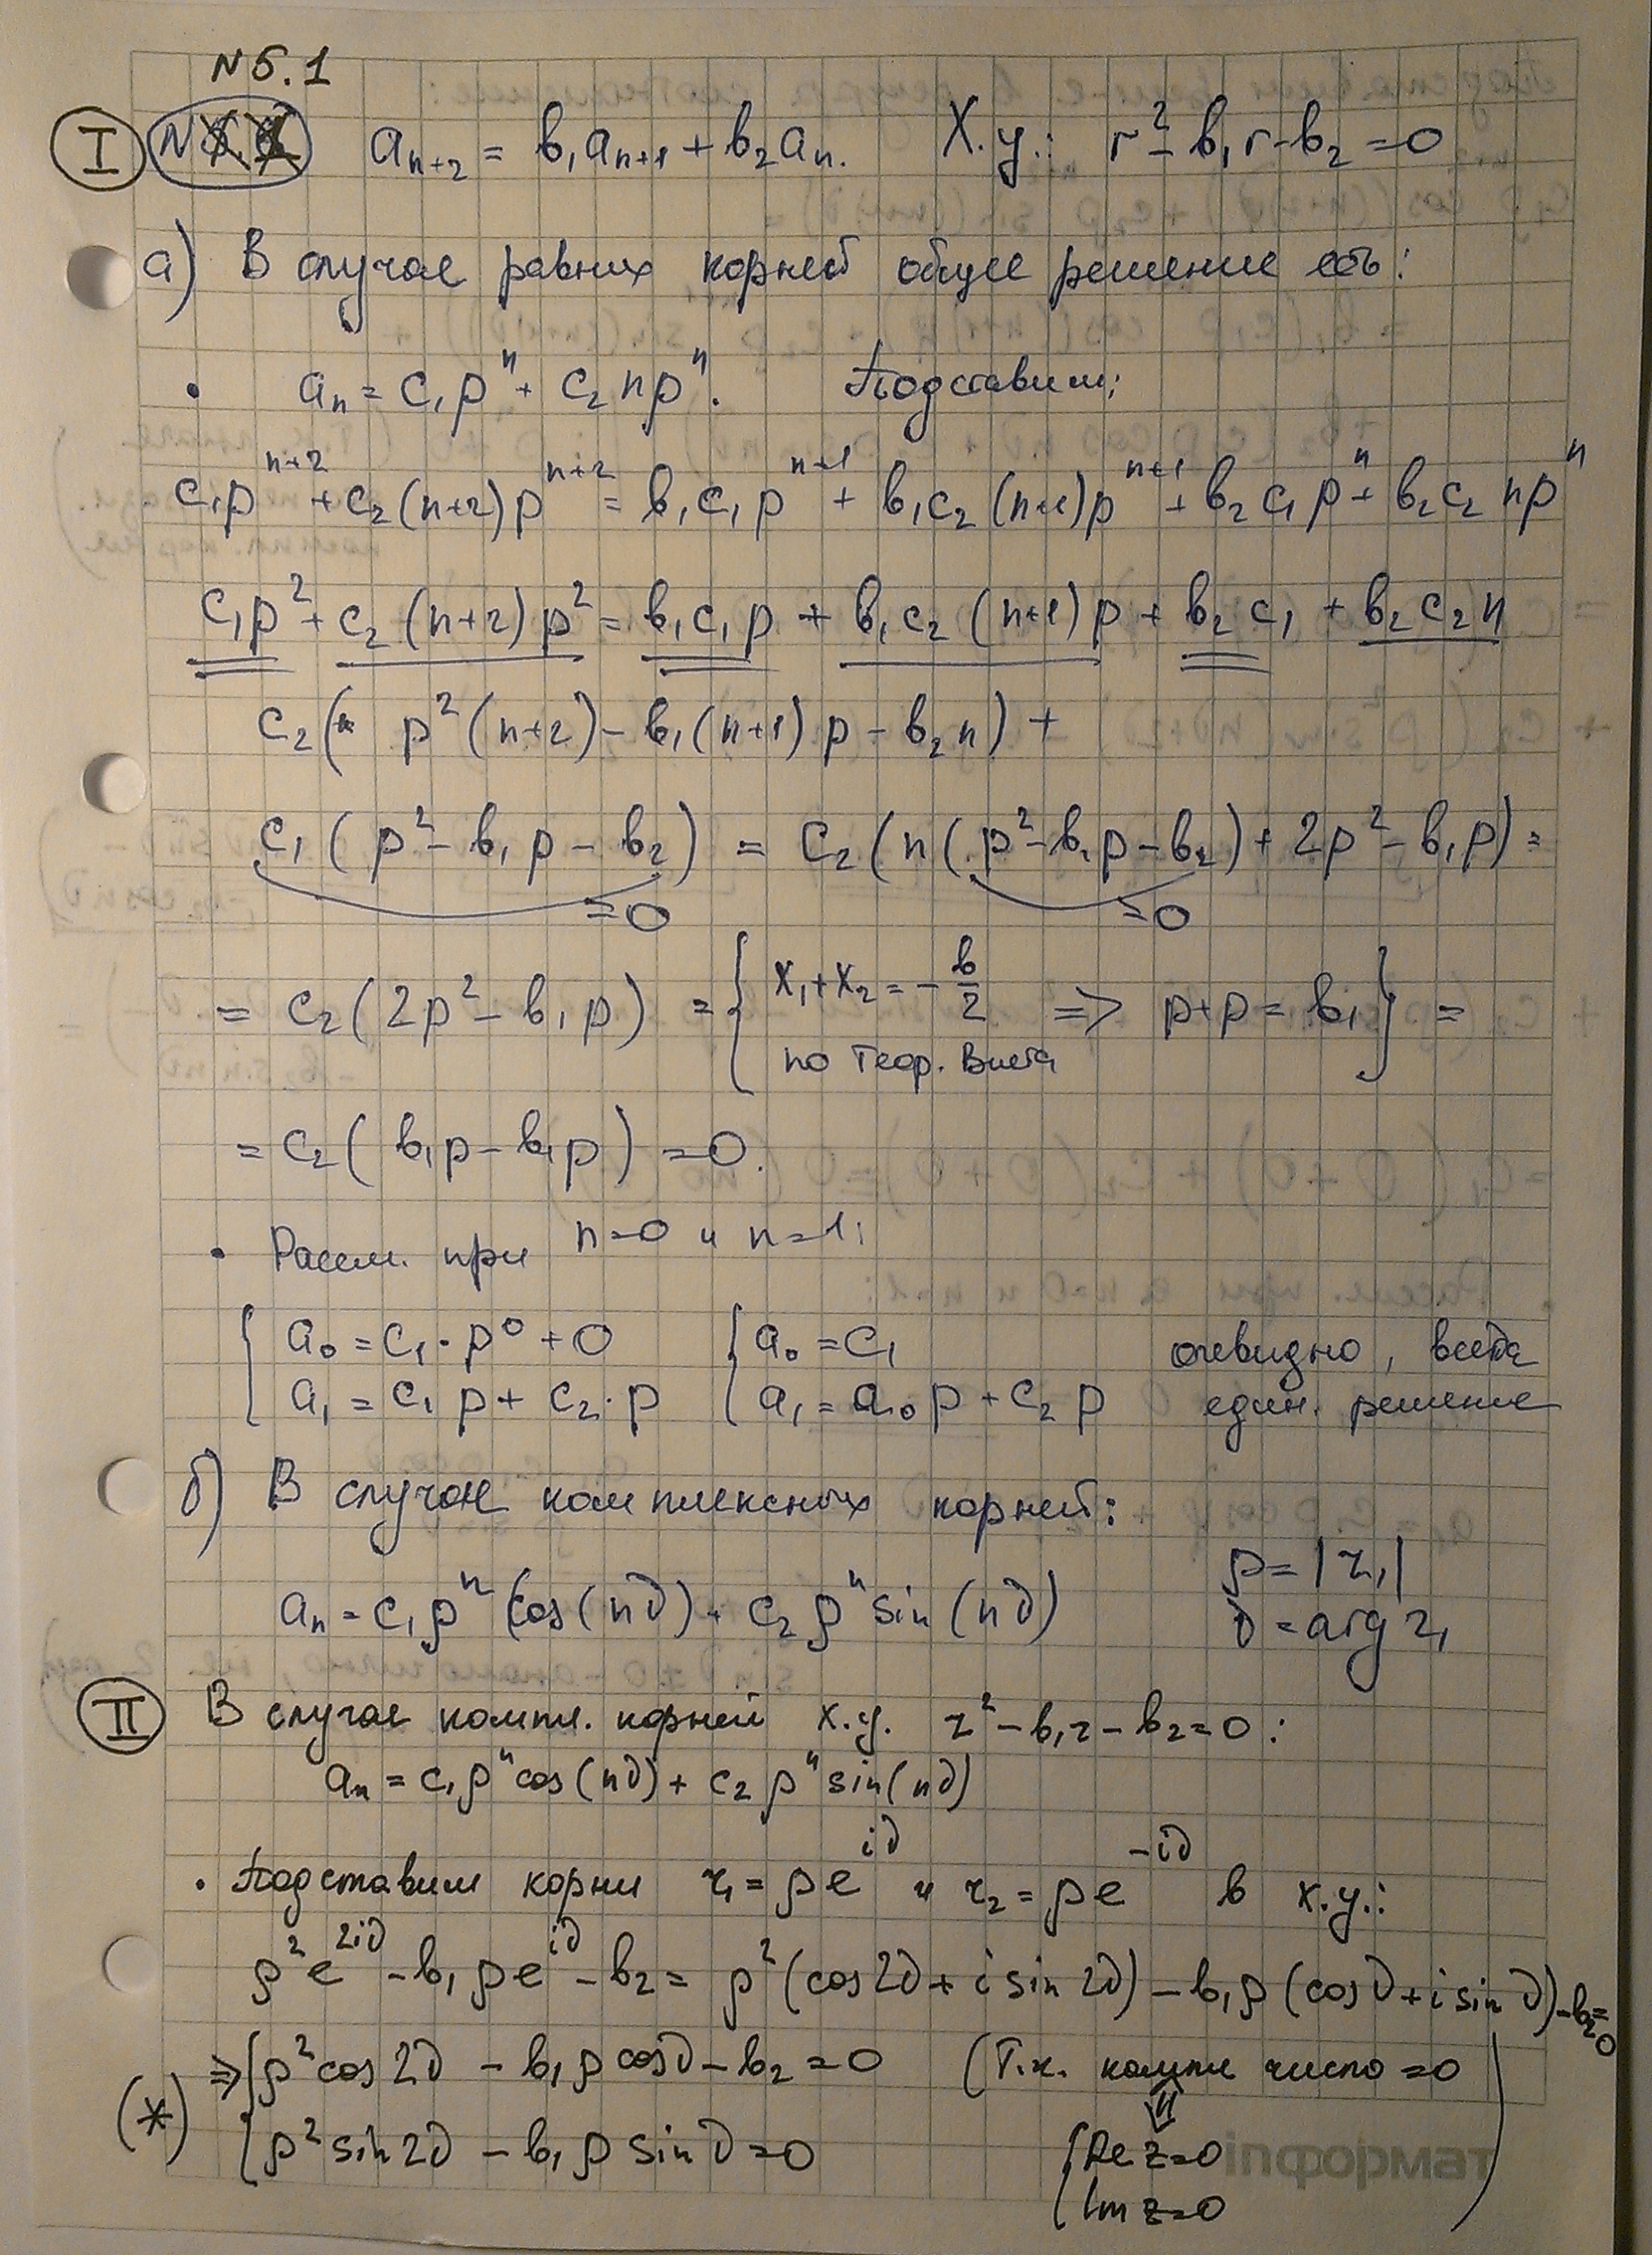 N5.1
I a_{n+2} = b₁a_{n+1} + b₂a_n. Х.у.: r² - b₁r - b₂ = 0
а) В случае равных корней общее решение есть:
• a_n = c₁p^n + c₂np^n. Подставим:
c₁p^{n+2} + c₂(n+2)p^{n+2} = b₁c₁p^{n+1} + b₁c₂(n+1)p^{n+1} + b₂c₁p^n + b₂c₂np^n
c₁p² + c₂(n+2)p² = b₁c₁p + b₁c₂(n+1)p + b₂c₁ + b₂c₂n
c₂( p²(n+2) - b₁(n+1)p - b₂n) +
c₁(p² - b₁p - b₂) = c₂(n(p² - b₁p - b₂) + 2p² - b₁p) =
=0 =0
= c₂(2p² - b₁p) = { x₁+x₂ = -b/2 по теор. Виета => p+p = b₁ } =
= c₂(b₁p - b₁p) = 0.
• Рассм. при n=0 и n=1:
{ a₀ = c₁·p⁰ + 0 { a₀ = c₁ очевидно, всегда
a₁ = c₁p + c₂·p a₁ = a₀p + c₂p един. решение
б) В случае комплексных корней:
a_n = c₁ρ^n cos(n∂) + c₂ρ^n sin(n∂) ρ = |r₁|
∂ = arg r₁
II В случае компл. корней х.у. r² - b₁r - b₂ = 0:
a_n = c₁ρ^n cos(n∂) + c₂ρ^n sin(n∂)
• Подставим корни r₁ = ρe^{i∂} и r₂ = ρe^{-i∂} в х.у.:
ρ²e^{2i∂} - b₁ρe^{i∂} - b₂ = ρ²(cos2∂ + i sin2∂) - b₁ρ(cos∂ + i sin∂) - b₂ = 0
(*) => { ρ²cos2∂ - b₁ρcos∂ - b₂ = 0 (т.к. компл число = 0
ρ²sin2∂ - b₁ρ sin∂ = 0 ⇓ { Re z=0
Im z=0 )
inформат